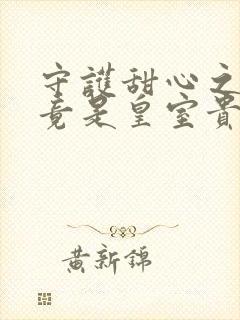 守護甜心之
竟是皇室貴
黃新錦